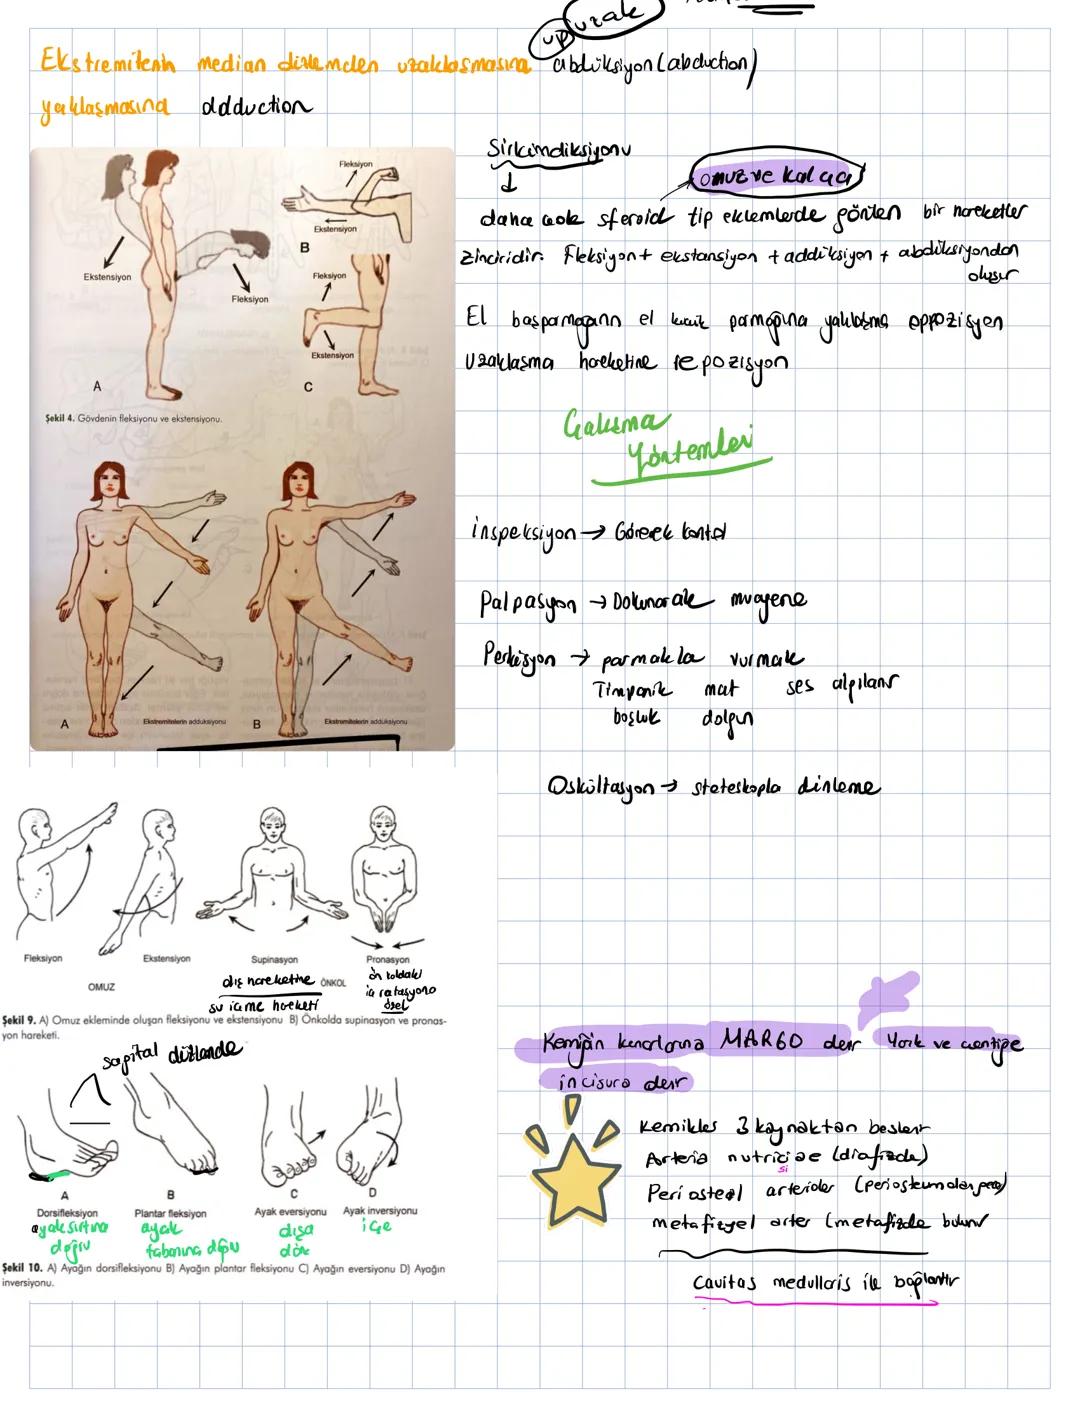 uzak
up
Ekstremitenin median düzlemden uzaklaşmasına abdüksiyon (abduction)
yaklaşmasına adduction
Sirkümdiksiyonu
omuz ve kalça
daha çok sferoid tip eklemlerde görülen bir hareketler
zinciridir. Fleksiyon + ekstansiyon + addüksiyon + abdüksiyondan
oluşur
El başparmağının el küçük parmağına yaklaşma oppozisyon
uzaklaşma hareketine repozisyon
Ekstensiyon
Fleksiyon
A
Fleksiyon
Ekstensiyon
B
Fleksiyon
Ekstensiyon
C
Şekil 4. Gövdenin fleksiyonu ve ekstensiyonu.
Çalışma
Yöntemleri
inspeksiyon → Görerek kontrol
Palpasyon → Dokunarak muayene
Perküsyon → parmakla vurmak
Timpanik mat ses algılanır
boşluk dolgun
Oskültasyon → steteskopla dinleme
A
Ekstremitelerin adduksiyonu
B
Ekstremitelerin adduksiyonu
Fleksiyon
Ekstensiyon
Supinasyon
Pronasyon
OMUZ
ÖNKOL
dış hareketine
su içme hareketi
ön koldaki
iç rotasyona
özel
Şekil 9. A) Omuz ekleminde oluşan fleksiyonu ve ekstensiyonu B) Önkolda supinasyon ve pronas-
yon hareketi.
sagital düzlemde
A
B
C
D
Dorsifleksiyon
Plantar fleksiyon
Ayak eversiyonu
Ayak inversiyonu
ayak sırtına
doğru
ayak
tabanına doğru
dışa
dön
içe
Şekil 10. A) Ayağın dorsifleksiyonu B) Ayağın plantar fleksiyonu C) Ayağın eversiyonu D) Ayağın
inversiyonu.
Kemiğin kenarlarına MARGO denir Yarık ve çentiğe
incisura denir
Kemikler 3 kaynaktan beslenir
Arteria nutriciae (diafizde)
si
Periosteal arterioler (periosteumdan
metafizyel arter (metafizde bulunur
Cavitas medullaris ile bağlantır